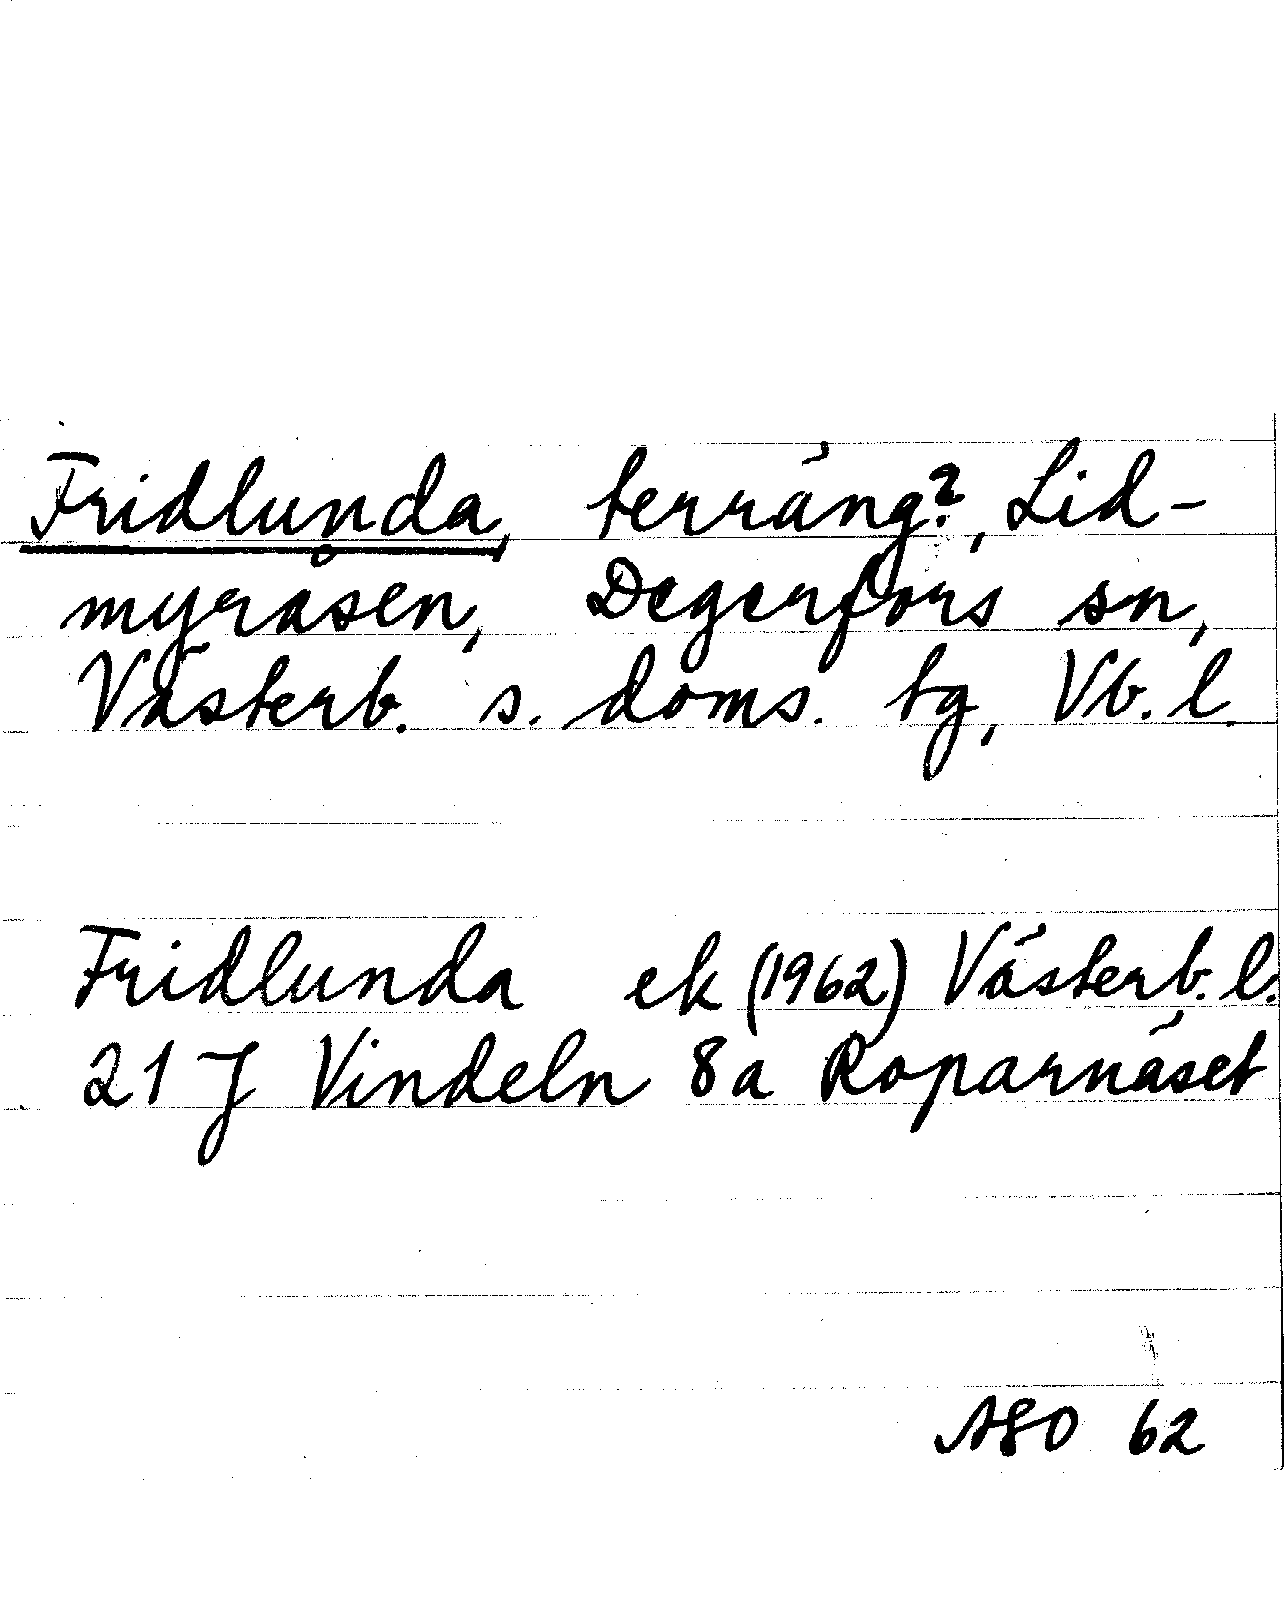 Fridlunda, terräng?, Lid-
myråsen, Degerfors sn,
Västerb. s. doms. tg, Vb. l.
Fridlunda ek (1962) Västerb. l.
21 J Vindeln 8a Roparnäset
ASO 62